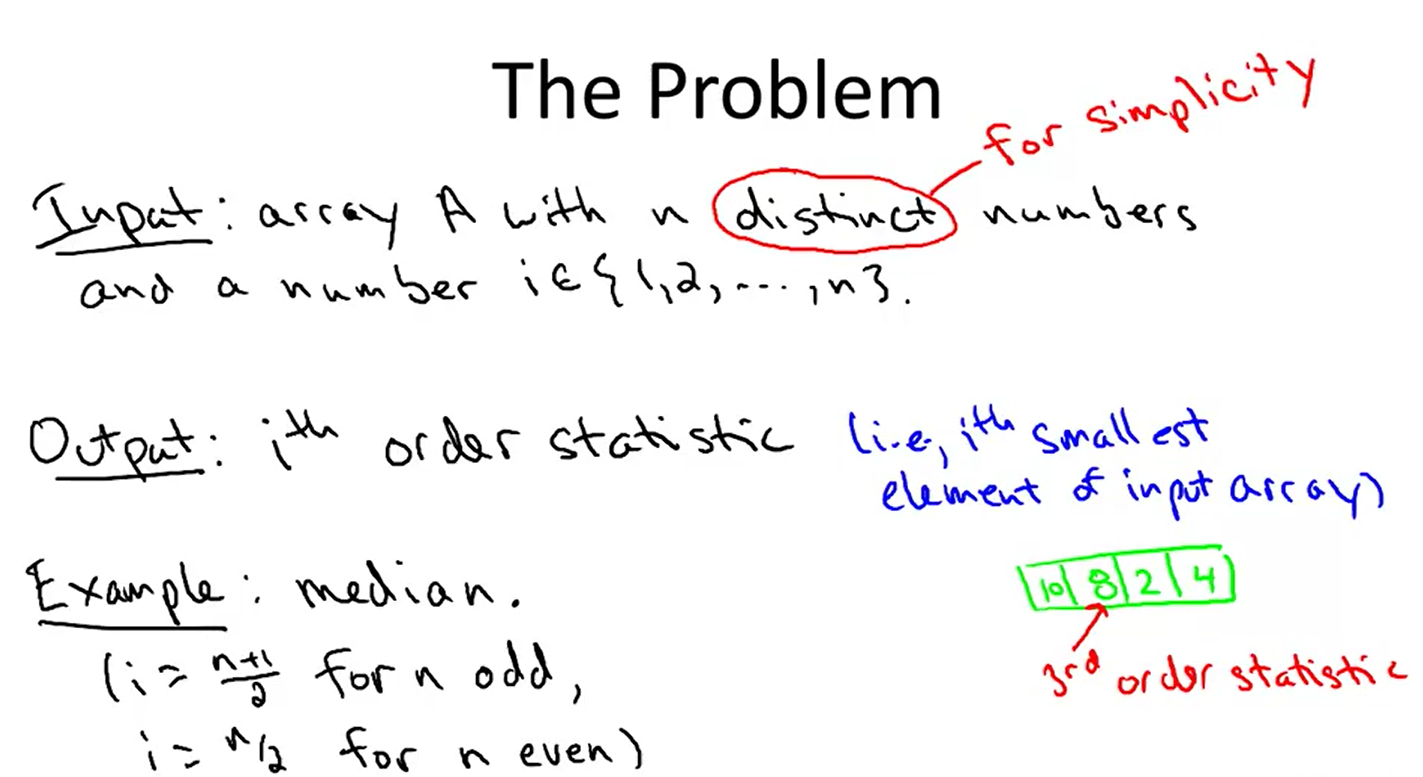 The Problem
for simplicity
Input: array A with n distinct numbers
and a number i ∈ {1,2,...,n}.
Output: iᵗʰ order statistic (i.e., iᵗʰ smallest
element of input array)
Example: median.
10 8 2 4
(i = n+1/2 for n odd,
3rd order statistic
i = n/2 for n even)